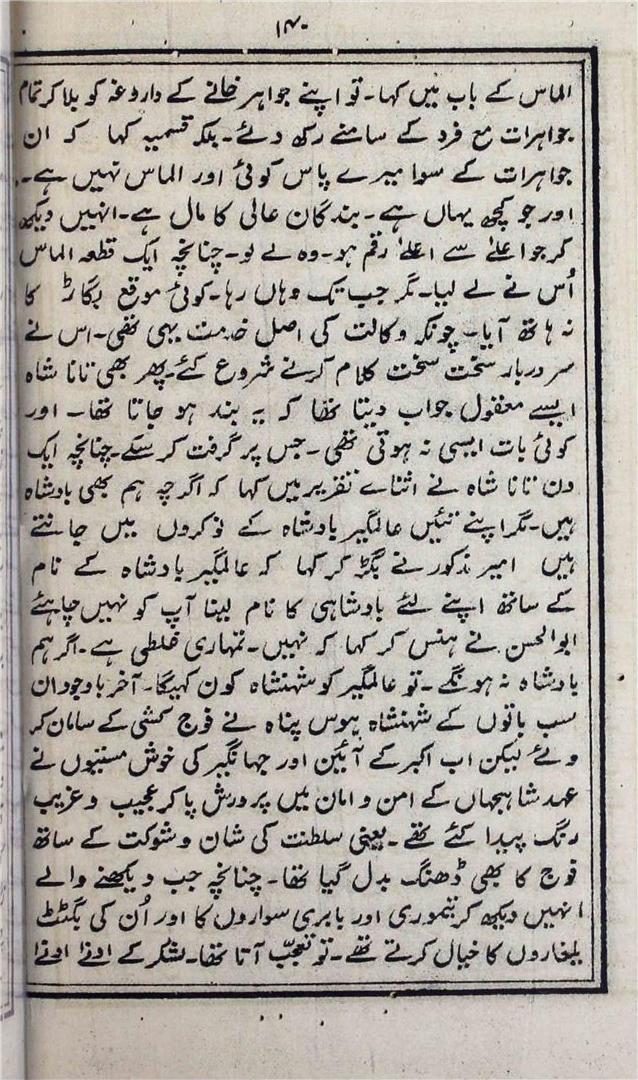 ۱۴۰
الماس کے باب میں کہا۔ تو اپنے جواہر خانے کے داروغہ کو بلا کر تمام
جواہرات مع فرد کے سامنے رکھ دئے۔ بلکہ قسمیہ کہا کہ ان
جواہرات کے سوا میرے پاس کوئی اور الماس نہیں ہے۔
اور جو کچھ یہاں ہے۔ بندگان عالی کا مال ہے۔ انہیں دیکھ
کر جو اعلےٰ سے اعلےٰ رقم ہو۔ وہ لے لو۔ چنانچہ ایک قطعہ الماس
اُس نے لے لیا۔ مگر جب تک وہاں رہا۔ کوئی موقع بگاڑ کا
نہ ہاتھ آیا۔ چونکہ وکالت کی اصل خدمت یہی تھی۔ اس نے
سر دربار سخت سخت کلام کرنے شروع کئے۔ پھر بھی تانا شاہ
ایسے معقول جواب دیتا تھا کہ یہ بند ہو جاتا تھا۔ اور
کوئی بات ایسی نہ ہوتی تھی۔ جس پر گرفت کر سکے۔ چنانچہ ایک
دن تانا شاہ نے اثناے تقریر میں کہا کہ اگرچہ ہم بھی بادشاہ
ہیں۔ مگر اپنے تئیں عالمگیر بادشاہ کے نوکروں میں جانتے
ہیں امیر مذکور نے بگڑ کر کہا کہ عالمگیر بادشاہ کے نام
کے ساتھ اپنے لئے بادشاہی کا نام لینا آپ کو نہیں چاہئے
ابوالحسن نے ہنس کر کہا کہ نہیں۔ تمہاری غلطی ہے۔ اگر ہم
بادشاہ نہ ہونگے۔ تو عالمگیر کو شہنشاہ کون کہیگا۔ آخر باوجود ان
سب باتوں کے شہنشاہ ہوس پناہ نے فوج کشی کے سامان کر
دئے لیکن اب اکبر کے آئین اور جہانگیر کی خوش مستیوں نے
عہد شاہجہاں کے امن و امان میں پرورش پا کر عجیب و غریب
رنگ پیدا کئے تھے۔ یعنی سلطنت کی شان و شوکت کے ساتھ
فوج کا بھی ڈھنگ بدل گیا تھا۔ چنانچہ جب دیکھنے والے
انہیں دیکھ کر تیموری اور بابری سواروں کا اور اُن کی بگٹٹ
یلغاروں کا خیال کرتے تھے۔ تو تعجّب آتا تھا۔ لشکر کے ادنےٰ ادنےٰ